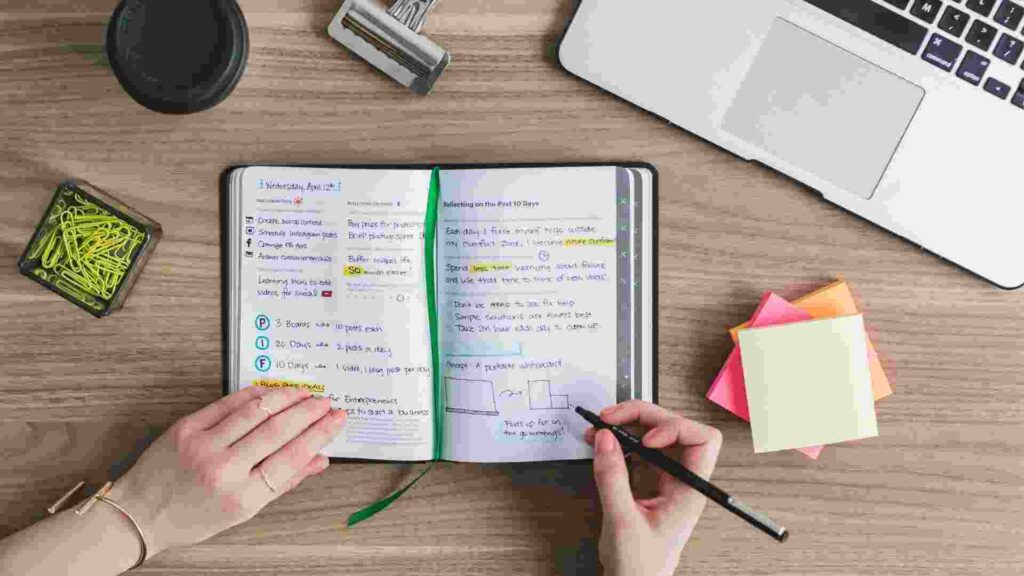 Wednesday, April 12th
Create social content
Schedule Instagram posts
Optimize FB ads
Answer customer emails
Learning how to edit
videos for social
Buy props for photoshoot
Brief photographer
Buffer makes life
SO much easier!
P 3 Boards 10 posts each
I 20 Days 2 posts a day
F 10 Days 1 video, 1 blog post per day
Blog Post Ideas
for Entrepreneurs
to start a business
Reflecting on the Past 10 Days
Each day I force myself to go outside
my comfort zone, I become more confident
Spend less time worrying about failure
and use that time to think of new ideas.
Don't be afraid to ask for help
Simple solutions are always best
Take an hour each day to
Concept: A portable whiteboard
Folds up for on
the go meetings!
command
option